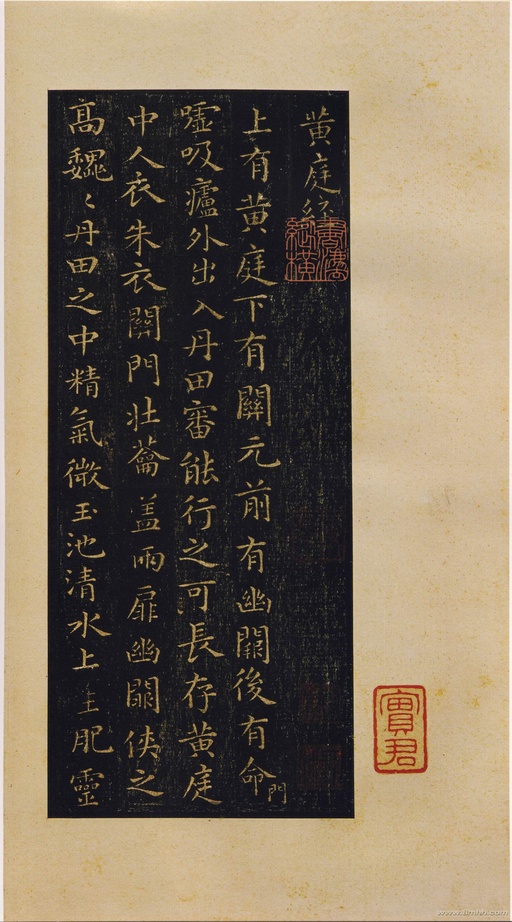 黄庭経
上有黄庭下有關元前有幽闕後有命門
嘘吸廬外出入丹田審能行之可長存黄庭
中人衣朱衣關門壯蘥蓋兩扉幽闕俠之
高魏〻丹田之中精氣微玉池清水上生肥靈
書濃縱橫
寶君
www.11mhh.com